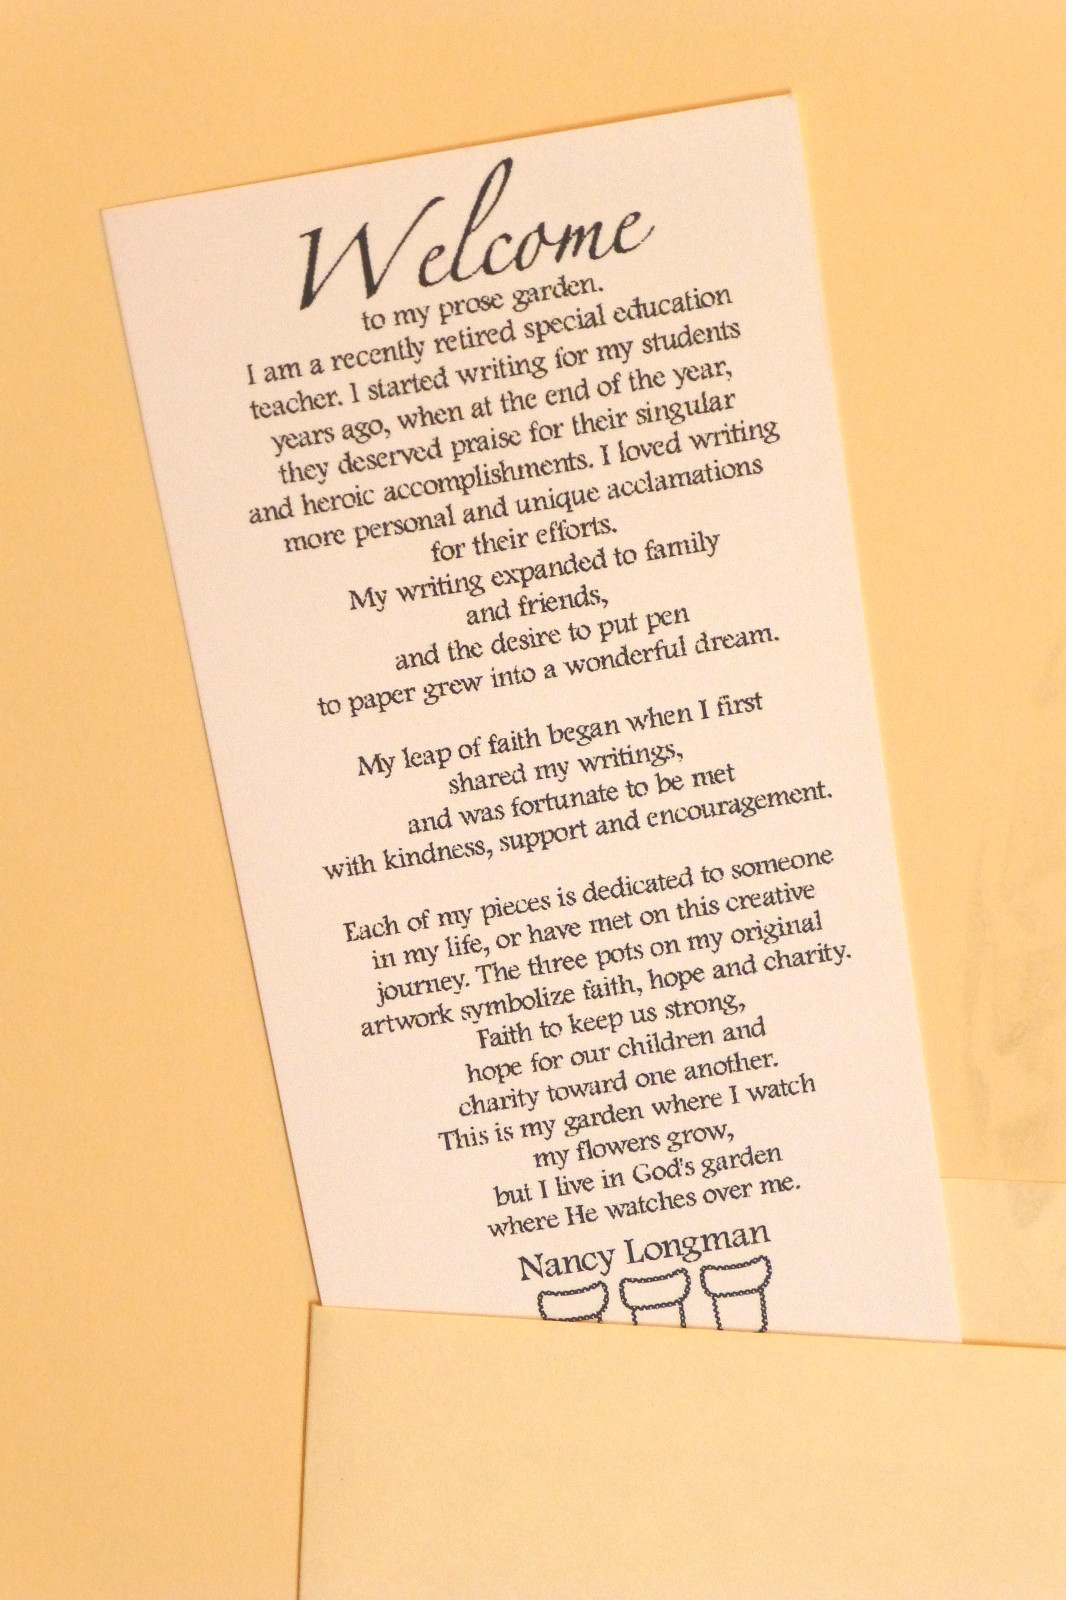 Welcome
to my prose garden.
I am a recently retired special education
teacher. I started writing for my students
years ago, when at the end of the year,
they deserved praise for their singular
and heroic accomplishments. I loved writing
more personal and unique acclamations
for their efforts.
My writing expanded to family
and friends,
and the desire to put pen
to paper grew into a wonderful dream.
My leap of faith began when I first
shared my writings,
and was fortunate to be met
with kindness, support and encouragement.
Each of my pieces is dedicated to someone
in my life, or have met on this creative
journey. The three pots on my original
artwork symbolize faith, hope and charity.
Faith to keep us strong,
hope for our children and
charity toward one another.
This is my garden where I watch
my flowers grow,
but I live in God's garden
where He watches over me.
Nancy Longman